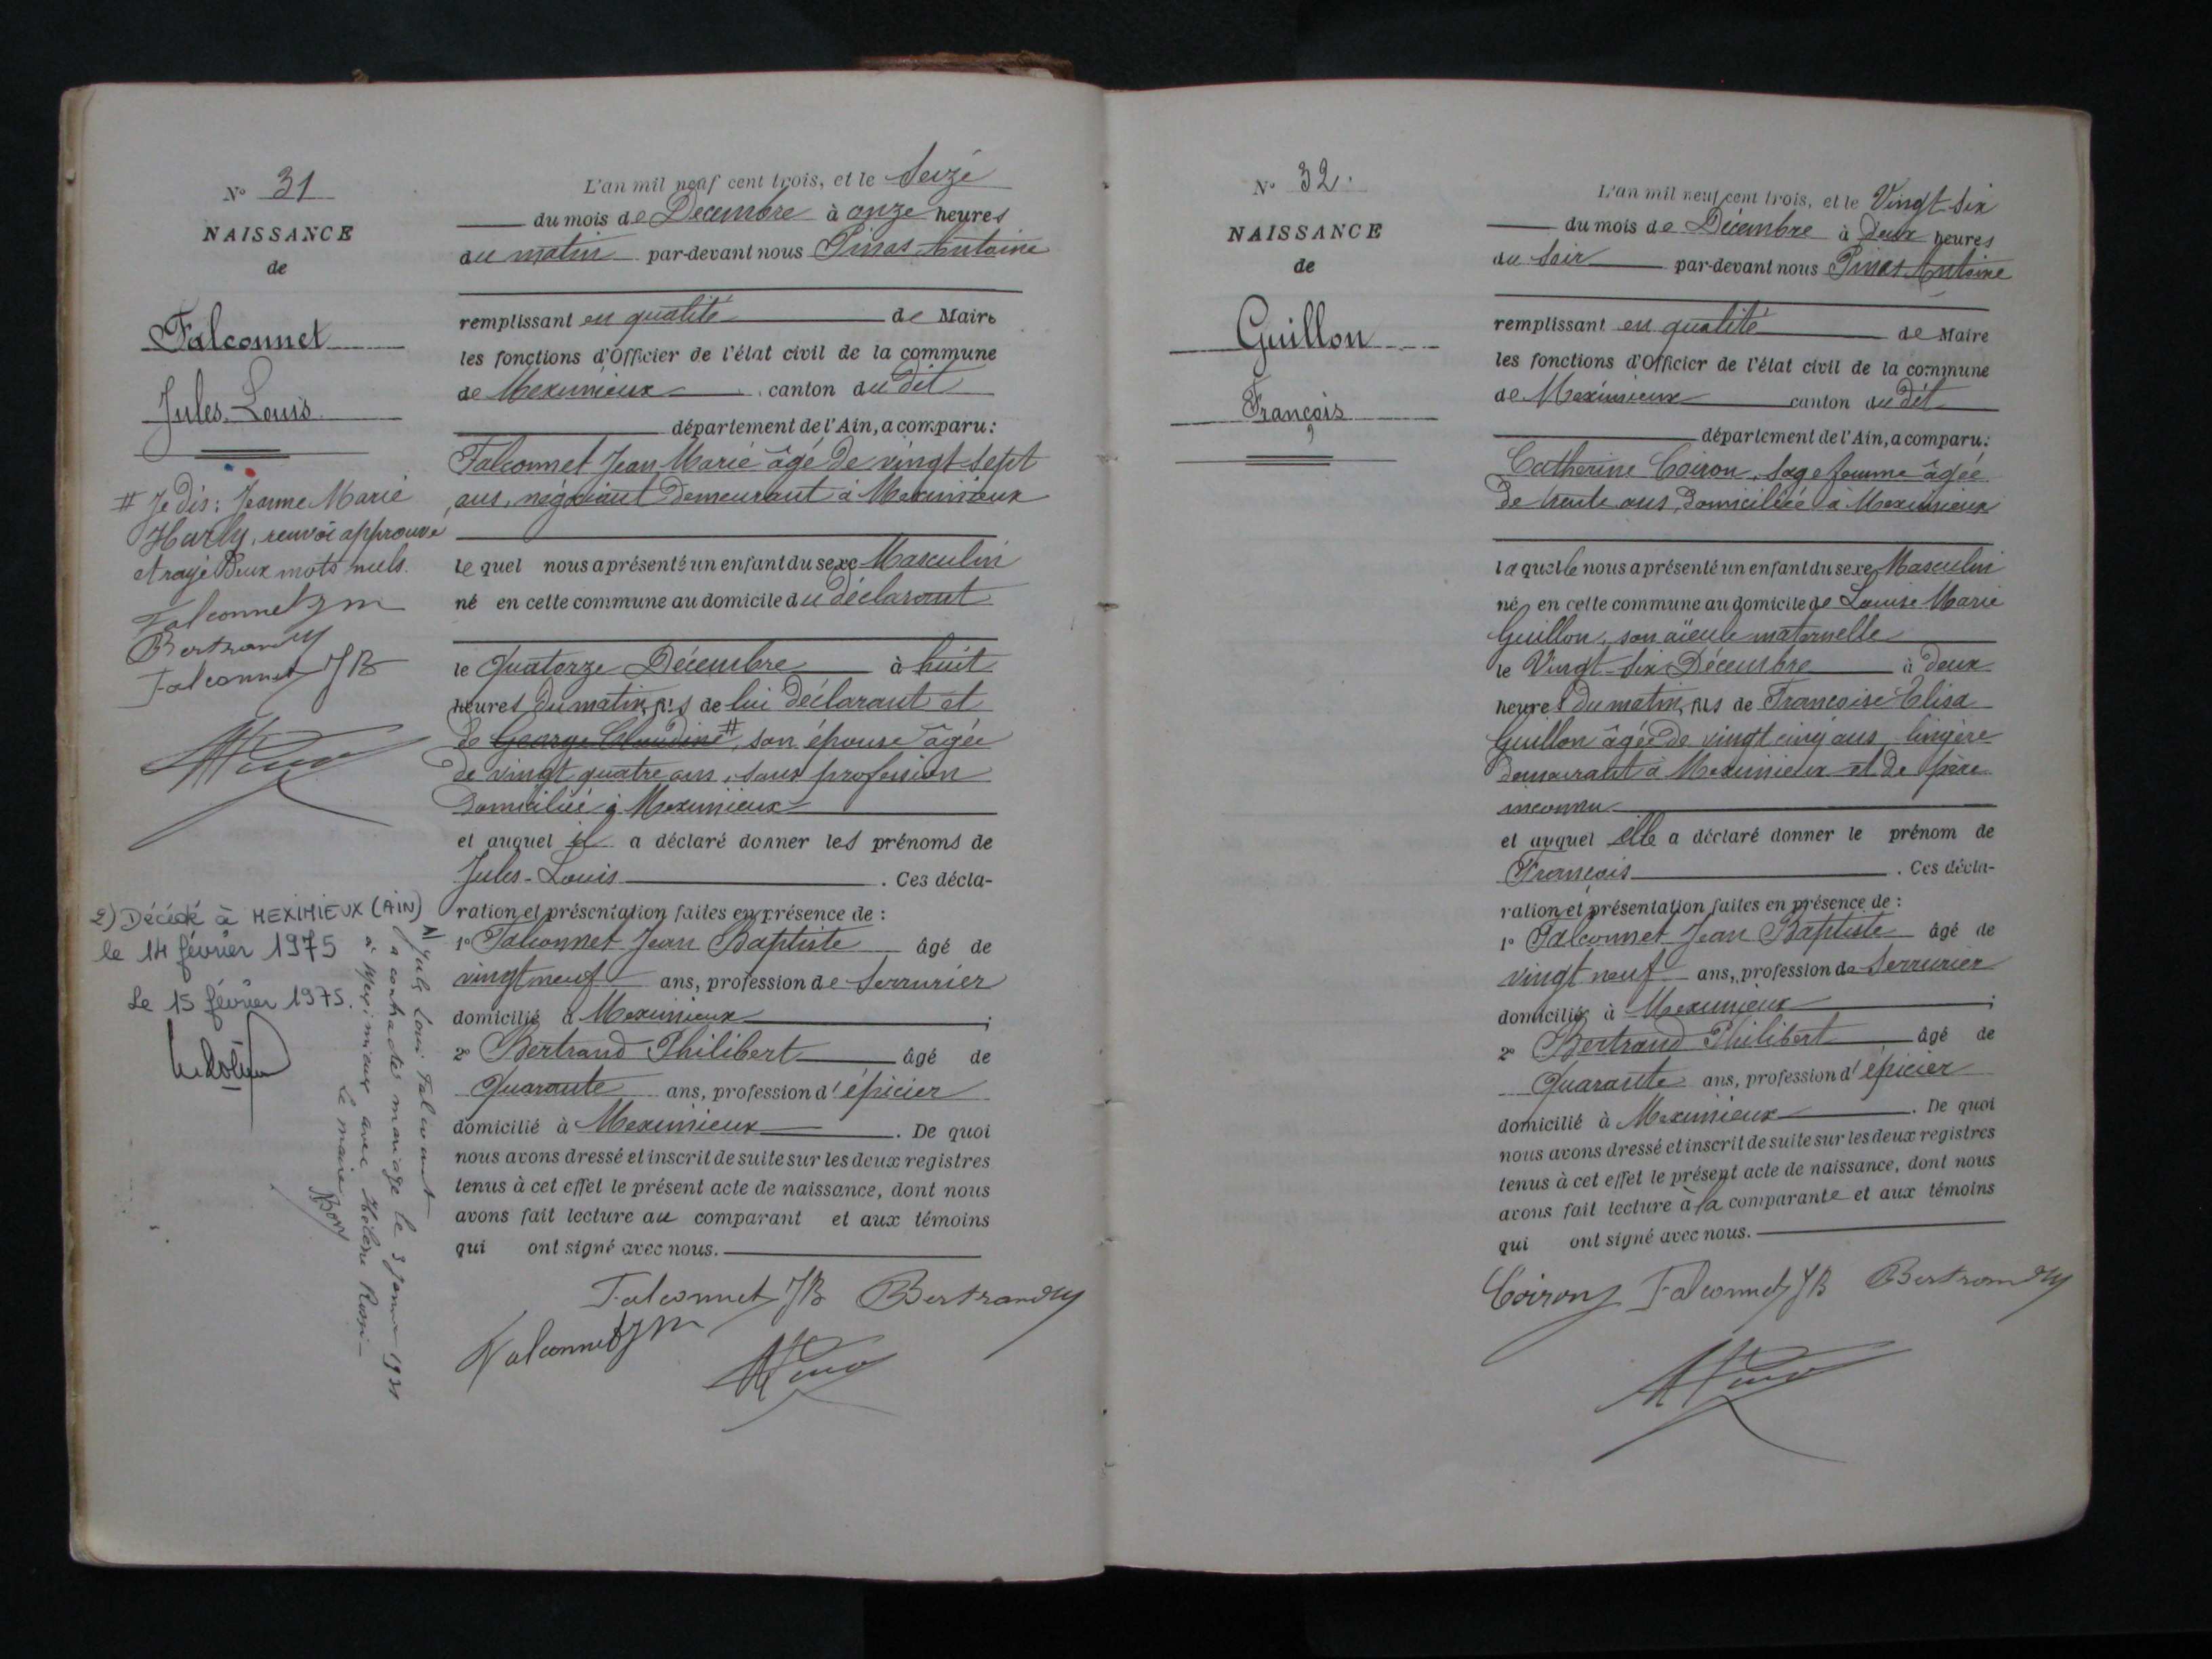 N° 31
NAISSANCE
de
Falconnet
Jules-Louis
# Je dis: Jeanne Marie
Hurly, renvoi approuvé
et rayé deux mots nuls.
Falconnet JM
Bertrand
Falconnet JB
2) Décédé à MEXIMIEUX (AIN)
le 14 février 1975
Le 15 février 1975.
1) Jules Louis Falconnet
a contracté mariage le 3 janvier 1931
à Meximieux avec Hélène Rossi
Le maire
L'an mil neuf cent trois, et le Seize
du mois de Décembre à onze heures
du matin par-devant nous Pinas Antoine
remplissant en qualité de Maire
les fonctions d'Officier de l'état civil de la commune
de Meximieux canton du dit
département de l'Ain, a comparu:
Falconnet Jean Marie âgé de vingt-sept
ans, négociant demeurant à Meximieux
lequel nous a présenté un enfant du sexe Masculin
né en cette commune au domicile du déclarant
le Quatorze Décembre à huit
heures du matin, fils de lui déclarant et
de George Claudine #, son épouse âgée
de vingt quatre ans, sans profession
domiciliée à Meximieux
et auquel il a déclaré donner les prénoms de
Jules-Louis. Ces décla-
ration et présentation faites en présence de :
1° Falconnet Jean Baptiste âgé de
vingt neuf ans, profession de Serrurier
domicilié à Meximieux ;
2° Bertrand Philibert âgé de
Quarante ans, profession d'épicier
domicilié à Meximieux. De quoi
nous avons dressé et inscrit de suite sur les deux registres
tenus à cet effet le présent acte de naissance, dont nous
avons fait lecture au comparant et aux témoins
qui ont signé avec nous.
Falconnet JB Bertrand
Falconnet JM
N° 32.
NAISSANCE
de
Guillon
François
L'an mil neuf cent trois, et le Vingt-six
du mois de Décembre à Deux heures
du soir par-devant nous Pinas Antoine
remplissant en qualité de Maire
les fonctions d'Officier de l'état civil de la commune
de Meximieux canton du dit
département de l'Ain, a comparu:
Catherine Coiron, sage femme âgée
de trente ans, domiciliée à Meximieux
laquelle nous a présenté un enfant du sexe Masculin
né en cette commune au domicile de Louise Marie
Guillon, son aïeule maternelle
le Vingt-six Décembre à deux
heures du matin, fils de Françoise Elisa
Guillon âgée de vingt cinq ans, lingère
demeurant à Meximieux et de père
inconnu
et auquel elle a déclaré donner le prénom de
François. Ces décla-
ration et présentation faites en présence de :
1° Falconnet Jean Baptiste âgé de
vingt neuf ans, profession de Serrurier
domicilié à Meximieux ;
2° Bertrand Philibert âgé de
Quarante ans, profession d'épicier
domicilié à Meximieux. De quoi
nous avons dressé et inscrit de suite sur les deux registres
tenus à cet effet le présent acte de naissance, dont nous
avons fait lecture à la comparante et aux témoins
qui ont signé avec nous.
Coiron Falconnet JB Bertrand